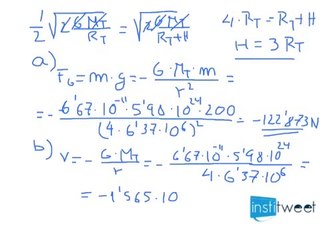 1/2 √(2GM_T/R_T) = √(2GM_T/(R_T+H))   4·R_T = R_T+H
H = 3R_T
a)
F_G = m·g = - G·M_T·m/r² =
= - 6'67·10⁻¹¹·5'98·10²⁴·200/(4·6'37·10⁶)² = -122'873N
b) V = - G·M_T/r = - 6'67·10⁻¹¹·5'98·10²⁴/4·6'37·10⁶ =
= -1'565·10
institweet